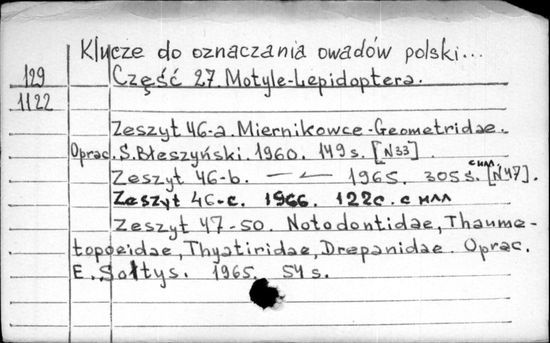 Klucze do oznaczania owadów polski...
129 Część 27. Motyle-Lepidoptera.
1122
Zeszyt 46-a. Miernikowce-Geometridae.
Oprac. S. Błeszyński. 1960. 149 s. [N33]
Zeszyt 46-b. —"— 1965. 305 s. с илл. [N47].
Zeszyt 46-c. 1966. 122с. с илл
Zeszyt 47-50. Notodontidae, Thaume-
topoeidae, Thyatiridae, Drepanidae. Oprac.
E. Sołtys. 1965. 54 s.